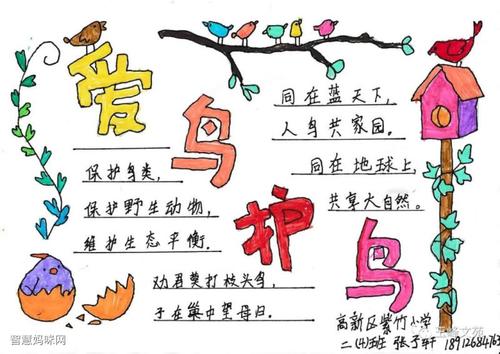 爱鸟护鸟
保护鸟类,
保护野生动物,
维护生态平衡.
劝君莫打枝头鸟,
子在巢中望母归.
同在蓝天下,
人鸟共家园.
同在地球上,
共享大自然。
高新区紫竹小学
二(4)班
智慧妈咪网